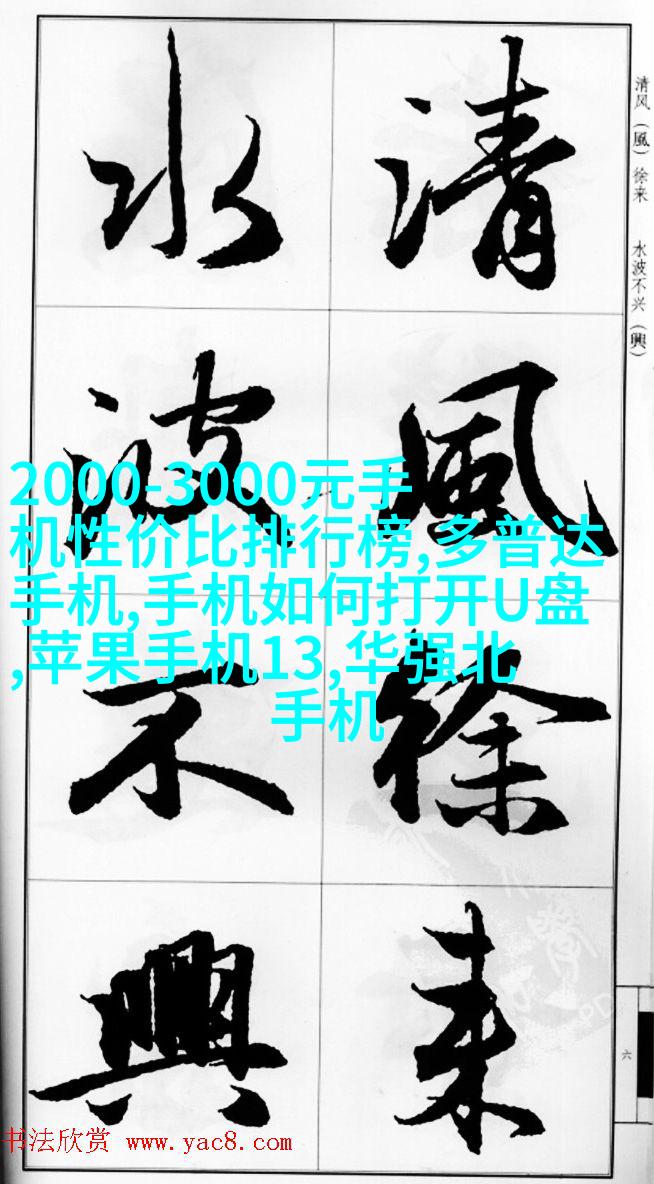 清風徐来
水波不興
清风（風）徐来　水波不兴（興）
2000-3000元手
机性价比排行榜,多普达
手机,手机如何打开U盘
,苹果手机13,华强北
手机
六
书法欣赏 www.yac8.com